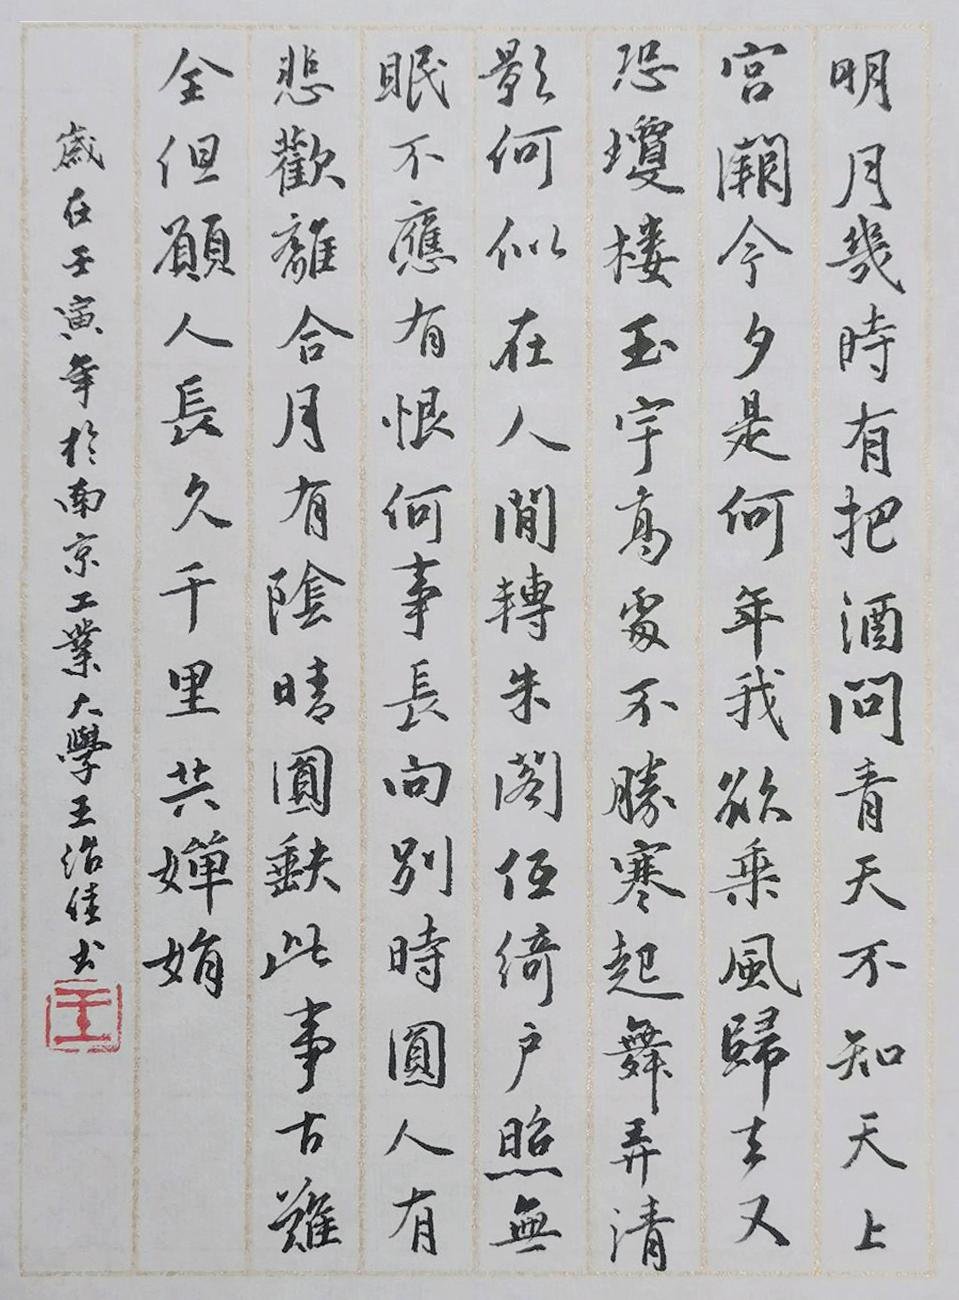 明月幾時有把酒問青天不知天上
宮闕今夕是何年我欲乘風歸去又
恐瓊楼玉宇高處不勝寒起舞弄清
影何似在人間轉朱閣低綺户照無
眠不應有恨何事長向別時圓人有
悲歡離合月有陰晴圓缺此事古難
全但願人長久千里共嬋娟
歲在壬寅年於南京工業大學王浩佳书
王